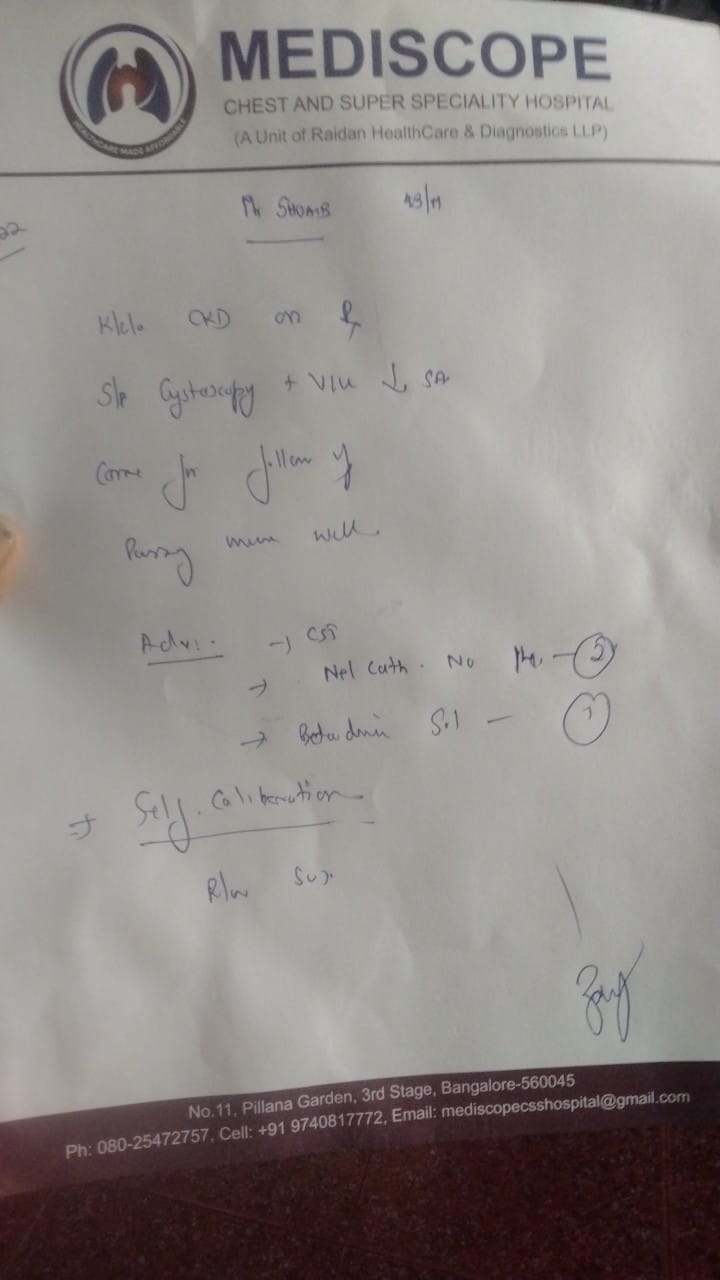 MEDISCOPE
CHEST AND SUPER SPECIALITY HOSPITAL
(A Unit of Raidan HealthCare & Diagnostics LLP)
HEALTHCARE MADE AFFORDABLE
Mr SHOAIB 43/M
22
K/c/o CKD on Rx
S/p Cystoscopy + VIU ↓ SA
Come for follow up
Passing urine well
Adv:
→ CST
→ Nel Cath. No - 2
→ Betadine Sol - 1
⇒ Self. Caliberation
R/w
No.11, Pillana Garden, 3rd Stage, Bangalore-560045
Ph: 080-25472757, Cell: +91 9740817772, Email: mediscopecsshospital@gmail.com